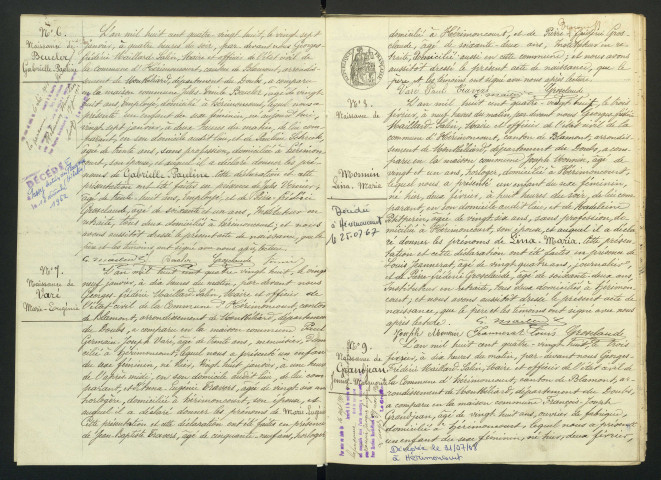 N° 6.
Naissance de
Beucler
Gabrielle Pauline
L'an mil huit cent quatre-vingt huit, le vingt sept
janvier, à quatre heures du soir, par devant nous Georges
Frédéric Maillard-Salin, Maire et officier de l'état civil de
la commune d'Hérimoncourt, canton de Blamont, arrondisse-
ment de Montbéliard, département du Doubs, a comparu
en la maison commune Jules Emile Beucler, âgé de vingt
ans, employé, domicilié à Hérimoncourt, lequel nous a
présenté un enfant du sexe féminin, né aujourd'hui
vingt sept janvier, à deux heures du matin, de lui com-
parant, en son domicile audit lieu, et de
âgée de trente ans, sans profession, domiciliée à Hérimon-
court, son épouse, et auquel il a déclaré donner les pré-
noms de Gabrielle Pauline. Cette déclaration et cette
présentation ont été faites en présence de Jules
âgé de trente-huit ans, employé, et de Pierre-Frédéric
Grosclaude, âgé de soixante et un ans, Instituteur en
retraite, tous deux domiciliés à Hérimoncourt; et nous
avons aussitôt dressé le présent acte de naissance, que le
père et les témoins ont signé avec nous après lecture.
Beucler Grosclaude
DÉCÉDÉE
1962
N° 7.
Naissance de
Varé
Marie-Eugénie
L'an mil huit cent quatre-vingt huit, le vingt
neuf janvier, à dix heures du matin, par devant nous
Georges Frédéric Maillard-Salin, Maire et officier de
l'état civil de la Commune d'Hérimoncourt, canton
de Blamont, arrondissement de Montbéliard, département
du Doubs, a comparu en la maison commune Pierre
Germain Joseph Varé, âgé de trente ans, menuisier, domi-
cilié à Hérimoncourt, lequel nous a présenté un enfant
du sexe féminin, né hier, vingt huit janvier, à une heure
de l'après midi, en son domicile audit lieu, de lui com-
parant, et d'Anna Eugénie Travers, âgée de vingt six ans
horlogère, domiciliée à Hérimoncourt, son épouse, et
auquel il a déclaré donner les prénoms de Marie Eugénie
Cette présentation et cette déclaration ont été faites en présence
de Jean Baptiste Travers, âgé de cinquante-neuf ans, horloger
domicilié à Hérimoncourt, et de Pierre Frédéric Gros-
claude, âgé de soixante-deux ans, Instituteur en re-
traite, domicilié aussi en cette commune; et nous avons
aussitôt dressé le présent acte de naissance, que le
père et les témoins ont signé avec nous après lecture.
Varé Paul Travers Grosclaude
N° 8.
Naissance de
Monnin
Lina Maria
Décédée
à Hérimoncourt
le 25.07.67
L'an mil huit cent quatre-vingt huit, le trois
février, à neuf heures du matin, par devant nous Georges Frédéric
Maillard-Salin, Maire et officier de l'état civil de la
commune d'Hérimoncourt, canton de Blamont, arrondisse-
ment de Montbéliard, département du Doubs, a com-
paru en la maison commune Joseph Monnin, âgé de
vingt et un ans, horloger, domicilié à Hérimoncourt,
lequel nous a présenté un enfant du sexe féminin,
né hier, deux février, à huit heures du soir, de lui com-
parant, en son domicile audit lieu, et de Madeleine
âgée de vingt six ans, sans profession, do-
miciliée à Hérimoncourt, son épouse, et auquel il a décla-
ré donner les prénoms de Lina Maria. Cette présen-
tation et cette déclaration ont été faites en présence de
Louis âgé de vingt quatre ans, journalier,
et de Pierre-Frédéric Grosclaude, âgé de soixante-deux ans
Instituteur en retraite, tous deux domiciliés à Hérimon-
court, et nous avons aussitôt dressé le présent acte de
naissance, que le père et les témoins ont signé avec nous
après lecture.
Joseph Monnin Louis Grosclaude
N° 9.
Naissance de
Grandjean
L'an mil huit cent quatre-vingt huit, le trois
février, à dix heures du matin, par devant nous Georges
Frédéric Maillard-Salin, Maire et officier de l'état civil de
la Commune d'Hérimoncourt, canton de Blamont, ar-
rondissement de Montbéliard, département du Doubs,
a comparu en la maison commune François Joseph
Grandjean, âgé de vingt huit ans, ouvrier de fabrique,
domicilié à Hérimoncourt, lequel nous a présenté
un enfant du sexe féminin, né hier, deux février,
Décédée le 31/07/68
à Hérimoncourt